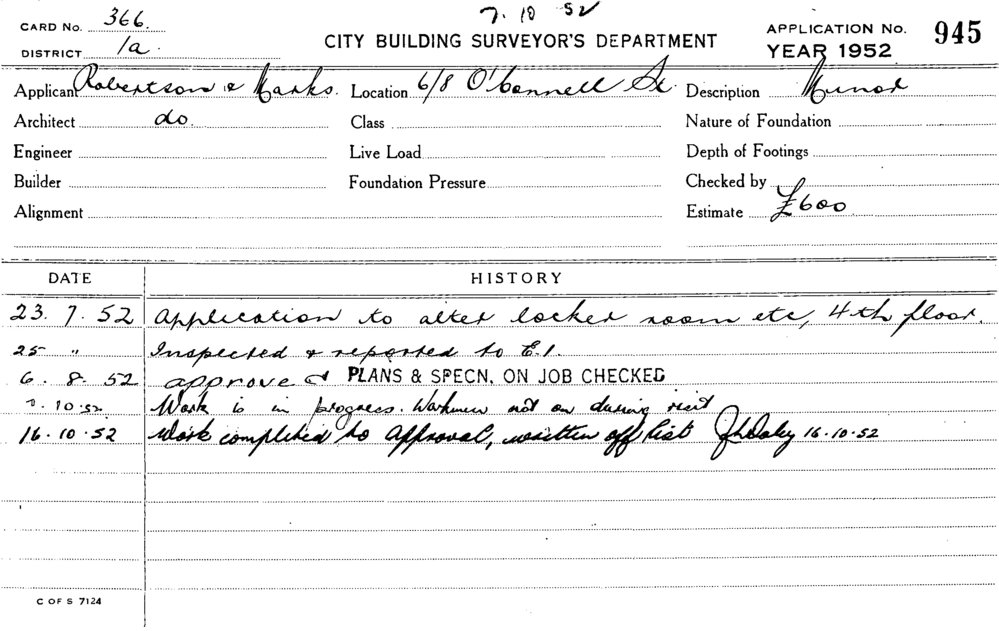 CARD No. 366.
7. 10 52
APPLICATION No. 945
DISTRICT 1a
CITY BUILDING SURVEYOR'S DEPARTMENT
YEAR 1952
Applicant Robertson & Marks. Location 6/8 O'Connell St. Description Minor
Architect do. Class Nature of Foundation
Engineer Live Load Depth of Footings
Builder Foundation Pressure Checked by
Alignment Estimate £600
DATE HISTORY
23. 7. 52 Application to alter locker room etc, 4th floor.
25 " Inspected & reported to E.1.
6. 8. 52 approved PLANS & SPECN. ON JOB CHECKED
7. 10. 52 Work is in progress. Workmen not on during visit
16. 10. 52 Work completed to approval, written off list 16. 10. 52
C OF S 7124